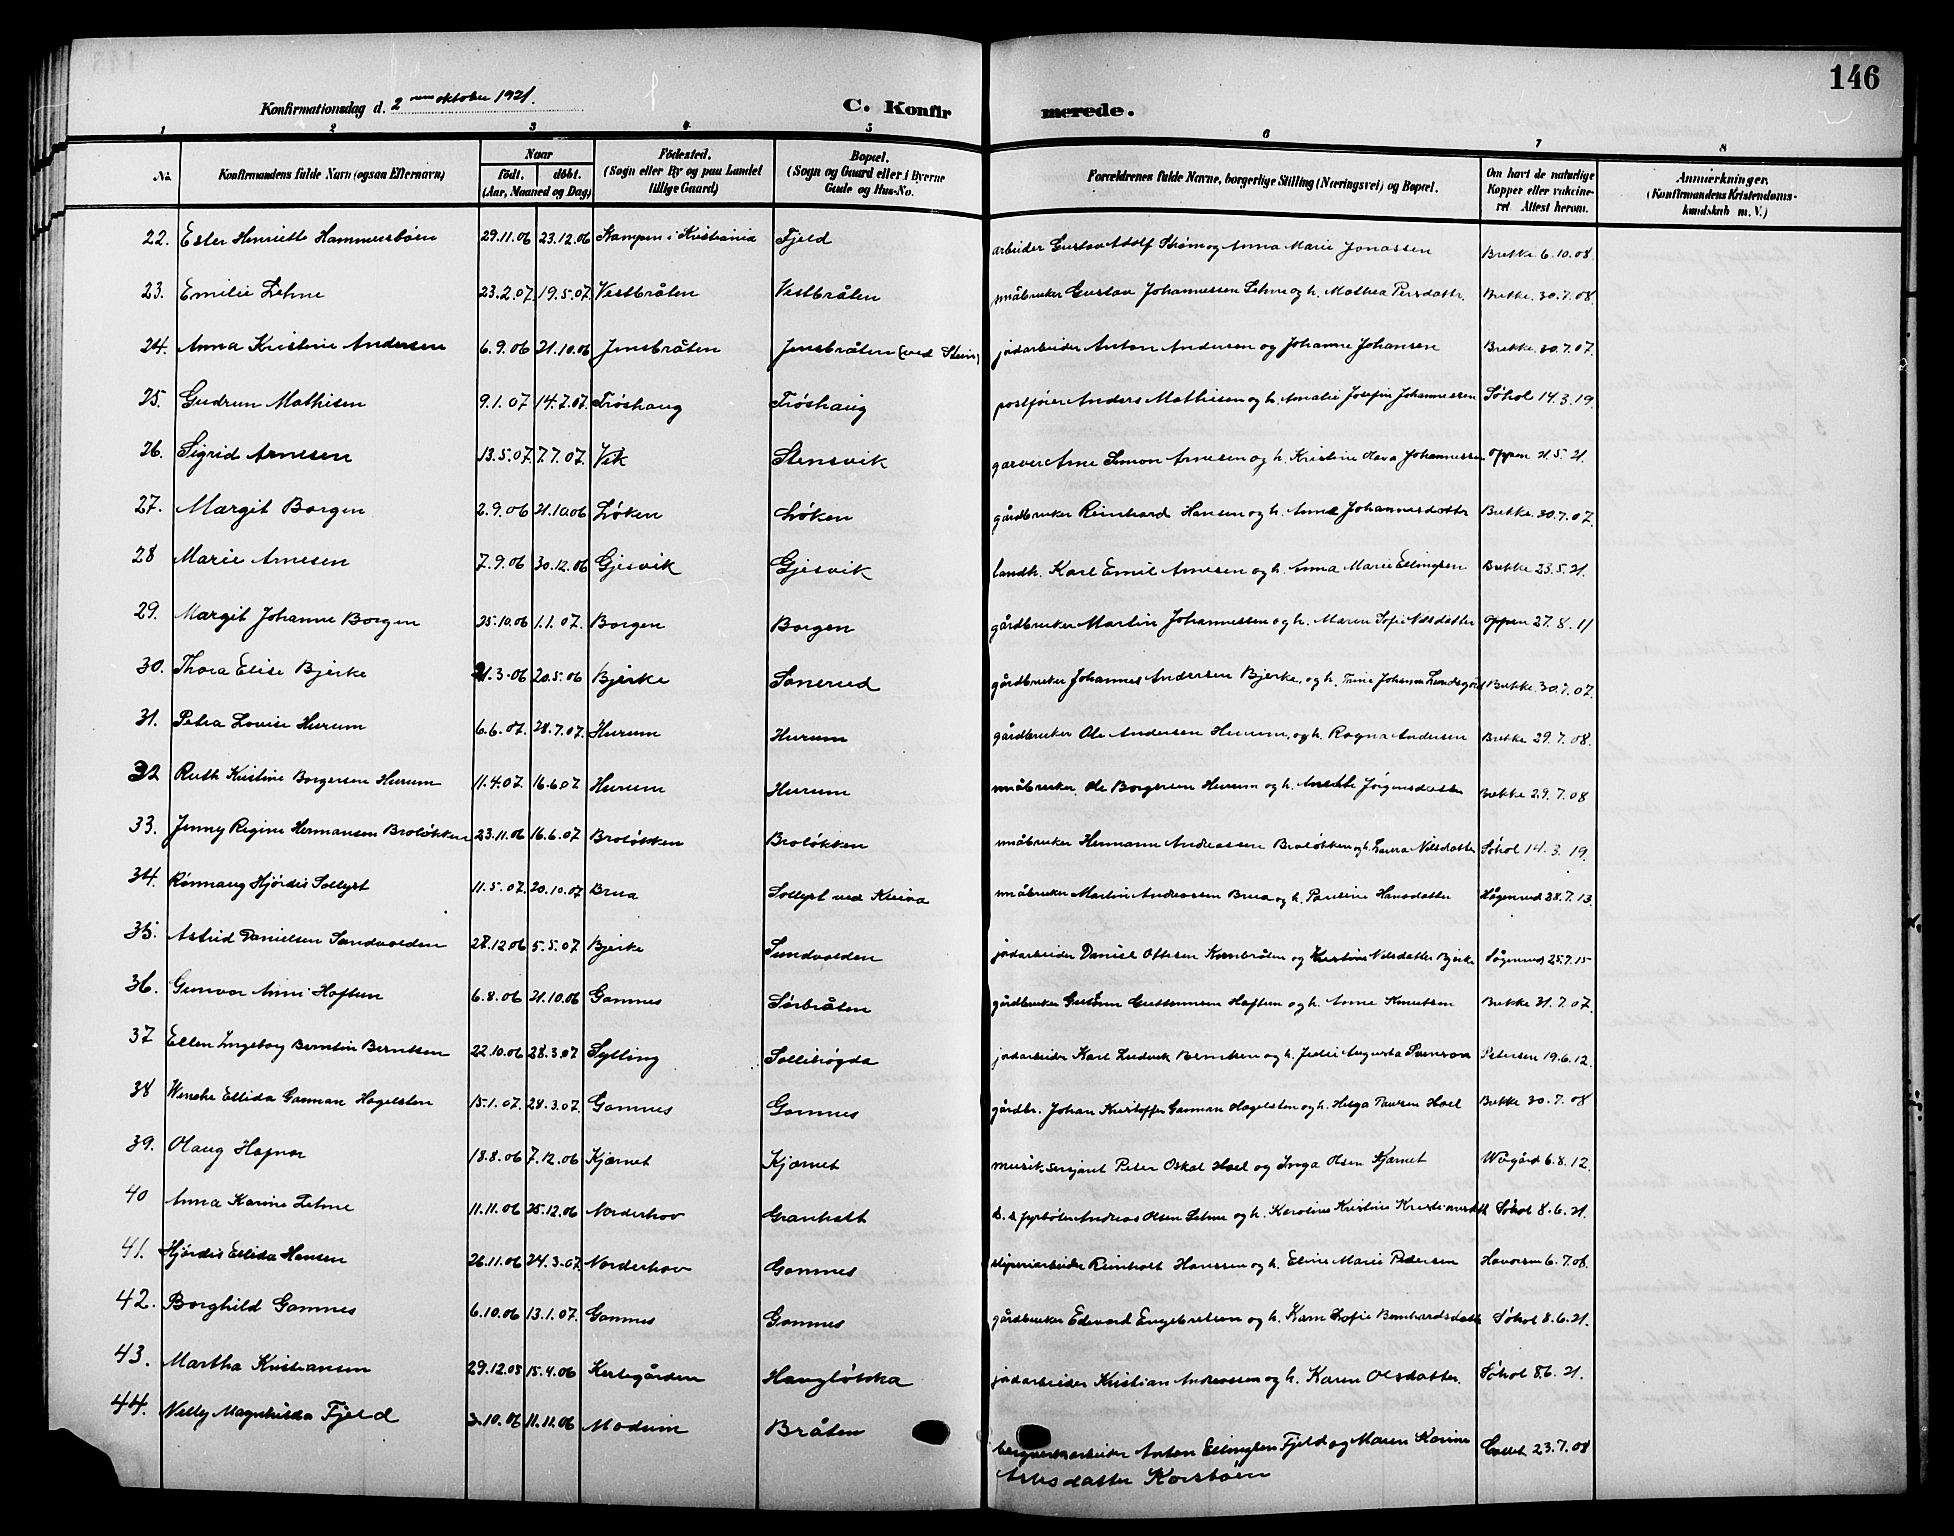 146
Konfirmationsdag d. 2 oktober 1921.
C. Konfirmerede.
1 2 3 4 5 6 7 8
No. Konfirmandens fulde Navn (ogsaa Efternavn) Naar födt. döbt. (Aar, Maaned og Dag) Födested. (Sogn eller By og paa Landet tillige Gaard) Bopæl. (Sogn og Gaard eller i Byerne Gade og Hus-No. Forældrenes fulde Navne, borgerlige Stilling (Næringsvei) og Bopæl. Om havt de naturlige Kopper eller vakcineret Attest herom. Anmærkninger. (Konfirmandens Kristendomskundskab m. V.)
22. Ester Henriette Hammersbøen 29.11.06 23.12.06 Kampen i Kristiania Fjeld arbeider Gustav Adolf Strøm og Anna Marie Jonassen Brekke 6.10.08.
23. Emilie Lehne 23.2.07. 19.5.07. Vestbråten Vestbråten småbruker Gustav Johannessen Lehne og h. Mathea Persdattr. Brekke 30.7.08.
24. Anna Kristine Andersen 6.9.06 21.10.06 Jensbråten Jensbråten (ved Stein) jordarbeider Anton Andersen og Johanne Johansen Brekke 30.7.07.
25. Gudrun Mathisen 9.1.07 14.7.07. Trøshaug Trøshaug postfører Anders Mathisen og h. Amalie Josefin Johannessen Søhol 14.3.19.
26. Sigrid Arnesen 13.5.07. 7.7.07. Vik Stensvik garver Arne Simon Arnesen og h. Kristine Olava Johannessen Oppen 21.5.21.
27. Margit Borgen 2.9.06 21.10.06 Løken Løken gårdbruker Reinhard Hansen og h. Anna Johannesdattr Brekke 30.7.07.
28 Marie Arnesen 7.9.06 30.12.06 Gjesvik Gjesvik landh. Karl Emil Arnesen og h. Anna Marie Ellingsen Brekke 23.5.21.
29. Margit Johanne Borgen 25.10.06 1.1.07. Borgen Borgen gårdbruker Martin Johannessen og h. Maren Sofie Nilsdatter Oppen 27.8.11
30. Thora Elise Bjerke 21.3.06 20.5.06 Bjerke Sonerud gårdbruker Johannes Andersen Bjerke, og h. Trine Johanna Lundsgård Brekke 30.7.07.
31. Petra Lovise Hurum 6.6.07. 28.7.07. Hurum Hurum gårdbruker Ole Andersen Hurum, og h. Ragna Andersen Brekke 29.7.08.
32 Ruth Kristine Borgersen Hurum 11.4.07. 16.6.07. Hurum Hurum småbruker, Ole Borgersen Hurum og h. Jørgensdatter Brekke 29.7.08
33. Jenny Regine Hermansen Broløkken 23.11.06 16.6.07 Broløkken Broløkken småbruker Hermann Andreassen Broløkken og h. Laura Nilsdatter Søhol 14.3.19.
34. Rønnaug Hjørdis Sollyst 11.5.07. 20.10.07 Brua Sollyst ved Kleiva småbruker Martin Andreassen Brua og h. Pauline Hansdatter Hågenrud 28.7.13.
35. Astrid Danielsen Sundvolden 28.12.06 5.5.07. Bjerke Sundvolden jordarbeider Daniel Ottesen og Kristine Nilsdatter Bjerke 25.9.15
36. Gunvor Anni Haftun 6.8.06 21.10.06 Gomnes Sørbråten gårdbruker Guttormsen Haftun og h. Anne Knutsen Brekke 31.7.07.
37 Ellen Ingeborg Berntin Berntsen 22.10.06 28.3.07 Sylling Sollihøgda jordarbeider Karl Ludvik Berntsen og h. Julie Augusta Svensson Petersen 19.6.12.
38 Wenche Ellida Gaman Hagelsten 15.1.07. 28.3.07. Gomnes Gomnes gårdbr. Johan Kristoffer Gaman Hagelsten og h. Helga Paursen Hoel Brekke 30.7.08
39. Olaug Hafnor 18.8.06 7.12.06 Kjærnet Kjærnet musik.sersjant Peter Oskal Hoel og Inga Olsen Kjærnet 6.8.12.
40 Anna Karine Lehne 11.11.06 25.12.06 Norderhov Granholt Andreas Olsen Lehne og h. Karoline Kristine Søhol 8.6.21.
41. Hjørdis Ellida Hansen 26.11.06 24.3.07 Norderhov Gomnes sliperiarbeider Reinholt Hanssen og h. Eline Marie Pedersen Havorsen 6.7.08.
42. Borghild Gomnes 6.10.06 13.1.07. Gomnes Gomnes gårdbruker Edvard Engebretsen og h. Karn Sofie Bernhardsdatter Søhol 8.6.21.
43. Martha Kristiansen 29.12.05 15.4.06 Kerlegården Haugløkka jordarbeider Kristian Andreassen og h. Karen Olsdatter. Søhol 8.6.21.
44. Nelly Magnhilda Fjeld 3.10.06 11.11.06 Modum Bråten bergverksarbeider Anton Ellingsen Fjeld og Maren Karine 23.7.08
Korsbøen